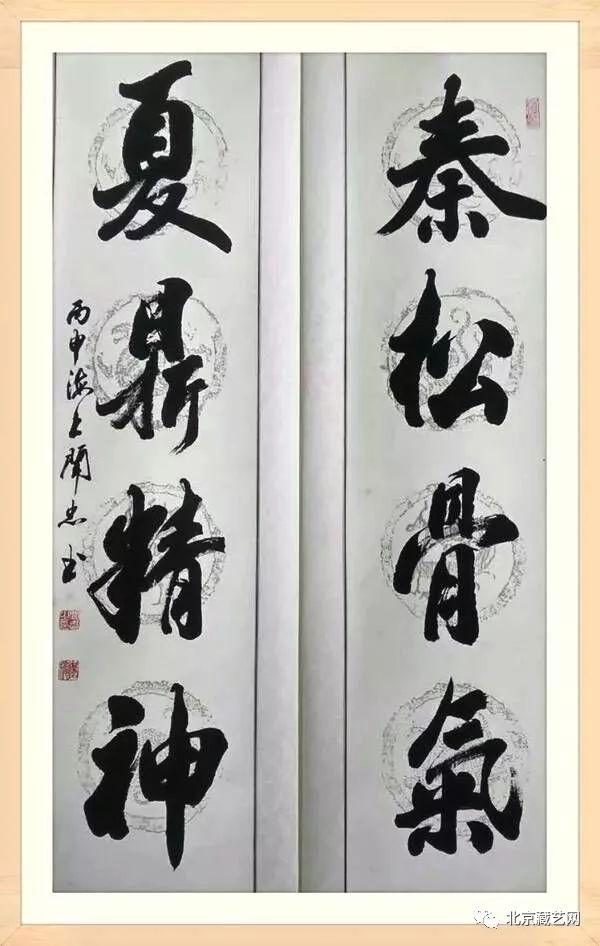 秦松骨氣
夏鼎精神
丙申海上閒忠书
北京藏艺网